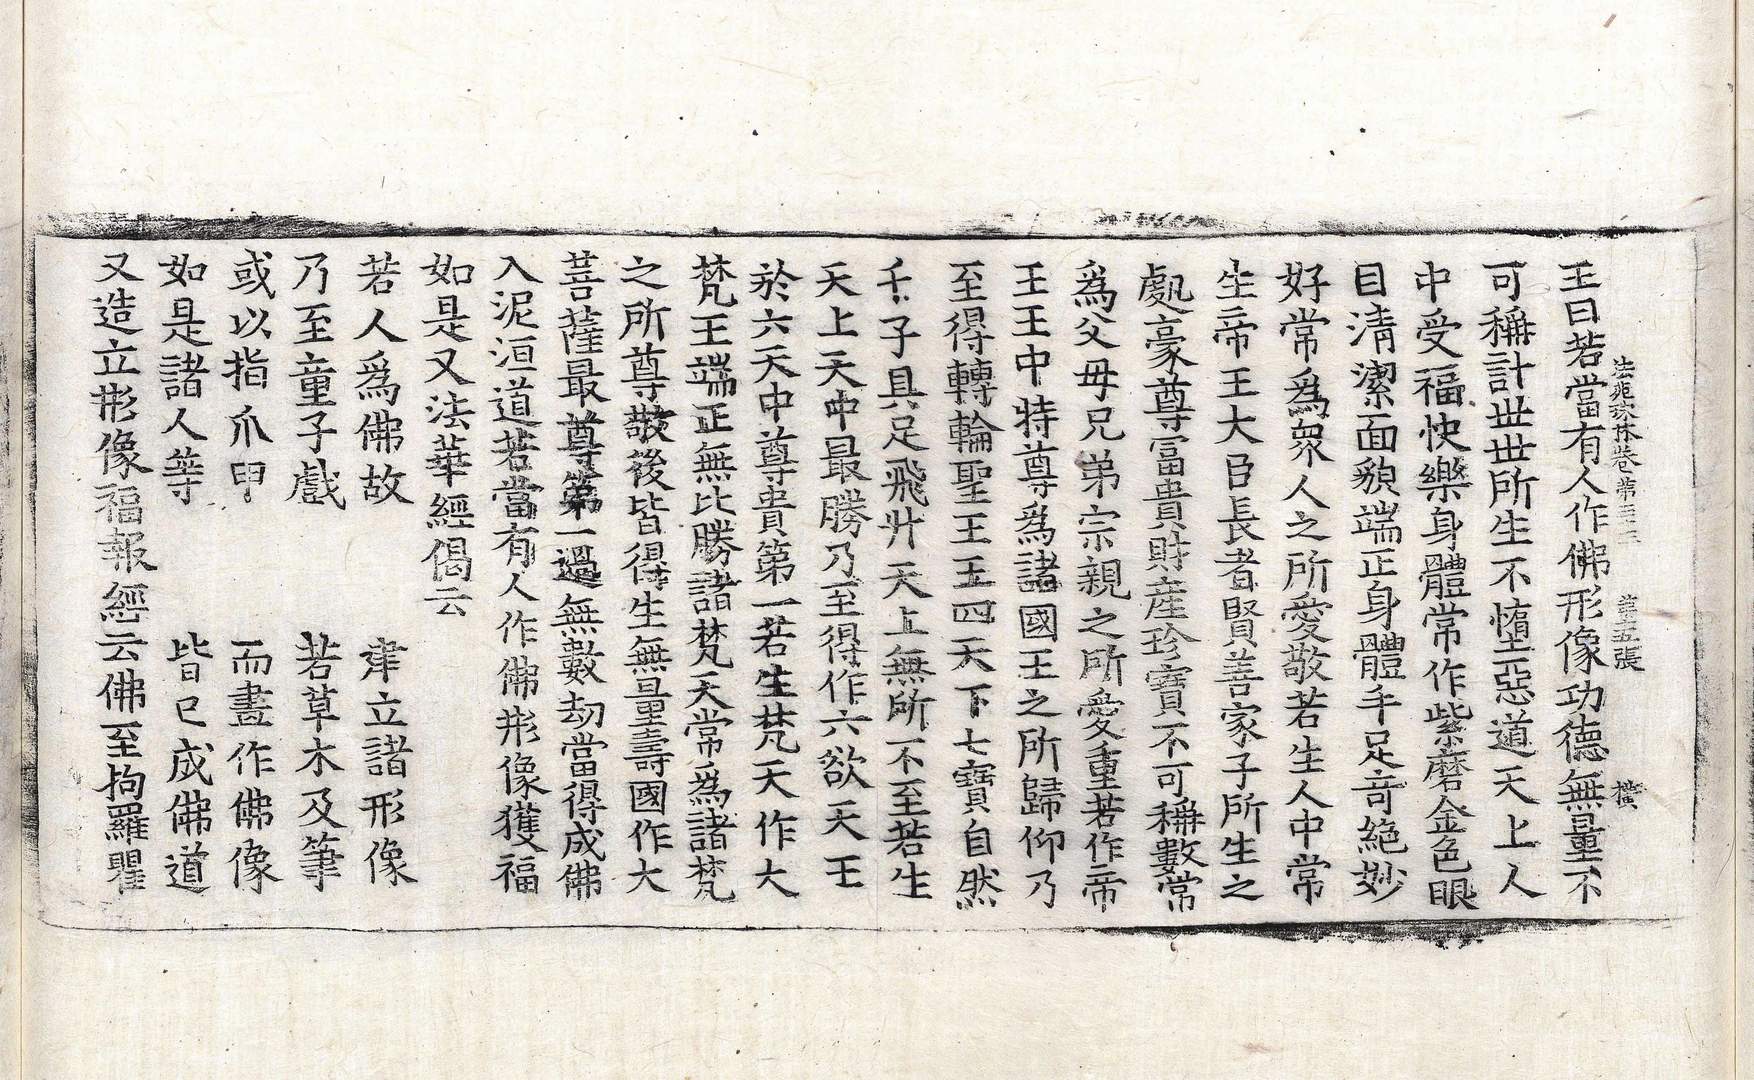 法苑珠林卷第三十三 第五張 橫
王曰若當有人作佛形像功德無量不
可稱計世世所生不憜惡道天上人
中受福快樂身體常作紫磨金色眼
目淸潔面貌端正身體手足奇絶妙
好常爲衆人之所愛敬若生人中常
生帝王大臣長者賢善家子所生之
處豪尊富貴財產珍寶不可稱數常
爲父母兄弟宗親之所愛重若作帝
王王中特尊爲諸國王之所歸仰乃
至得轉輪聖王王四天下七寶自然
千子具足飛升天上無所不至若生
天上天中最勝乃至得作六欲天王
於六天中尊貴第一若生梵天作大
梵王端正無比勝諸梵天常爲諸梵
之所尊敬後皆得生無量壽國作大
菩薩最尊第一過無數劫當得成佛
入泥洹道若當有人作佛形像獲福
如是又法華經偈云
若人爲佛故 建立諸形像
乃至童子戲 若草木及筆
或以指爪甲 而畫作佛像
如是諸人等 皆已成佛道
又造立形像福報經云佛至拘羅瞿